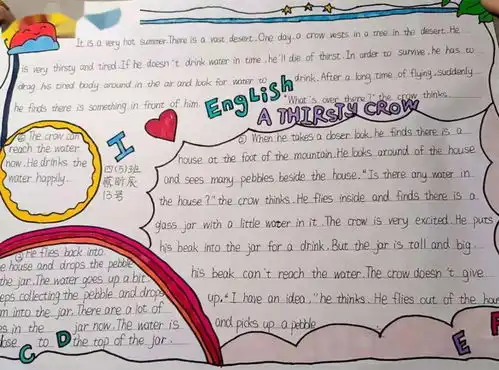 It is a very hot summer.There is a vast desert. One day, a crow rests in a tree in the desert. He
is very thirsty and tired. If he doesn't drink water in time, he'll die of thirst. In order to survive, he has to
drag his tired body around in the air and look for water to drink. After a long time of flying, suddenly
he finds there is something in front of him. "What's over there?" the crow thinks.
I
English
A THIRSTY CROW
② When he takes a closer look, he finds there is a
house at the foot of the mountain. He looks around of the house
and sees many pebbles beside the house. "Is there any water in
the house?" the crow thinks. He flies inside and finds there is a
glass jar with a little water in it. The crow is very excited. He puts
his beak into the jar for a drink. But the jar is tall and big
his beak can't reach the water. The crow doesn't give
up. "I have an idea," he thinks. He flies out of the hou
and picks up a pebble
③ He flies back into
e house and drops the pebble
the jar. The water goes up a bit.
eps collecting the pebble and drops
m into the jar. There are a lot of
es in the jar now. The water is
lose to the top of the jar.
④ The crow can
reach the water
now. He drinks the
water happily.
四(5)班
昕辰
13号
C D
E F